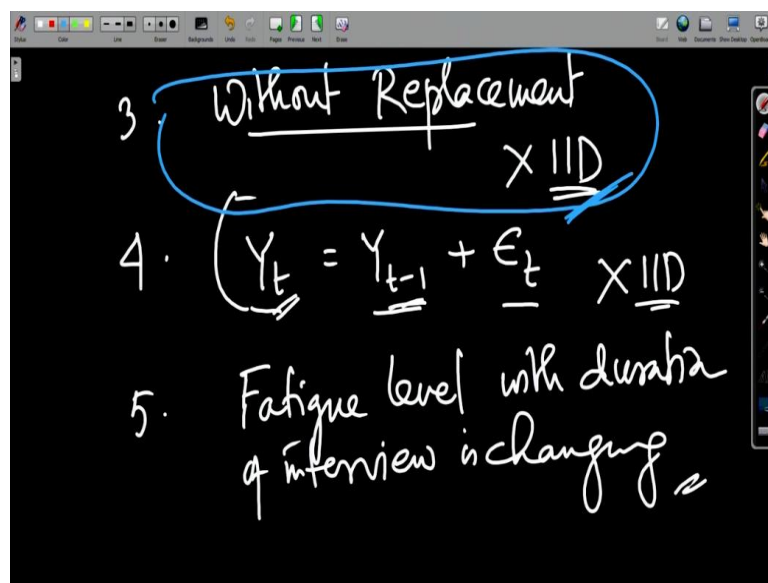 Stylus Color Line Eraser Backgrounds Undo Redo Pages Previous Next Erase Board Web Documents Show Desktop
3. Without Replacement
X IID
4. Y_t = Y_{t-1} + ϵ_t X IID
5. Fatigue level with duration
of interview is changing